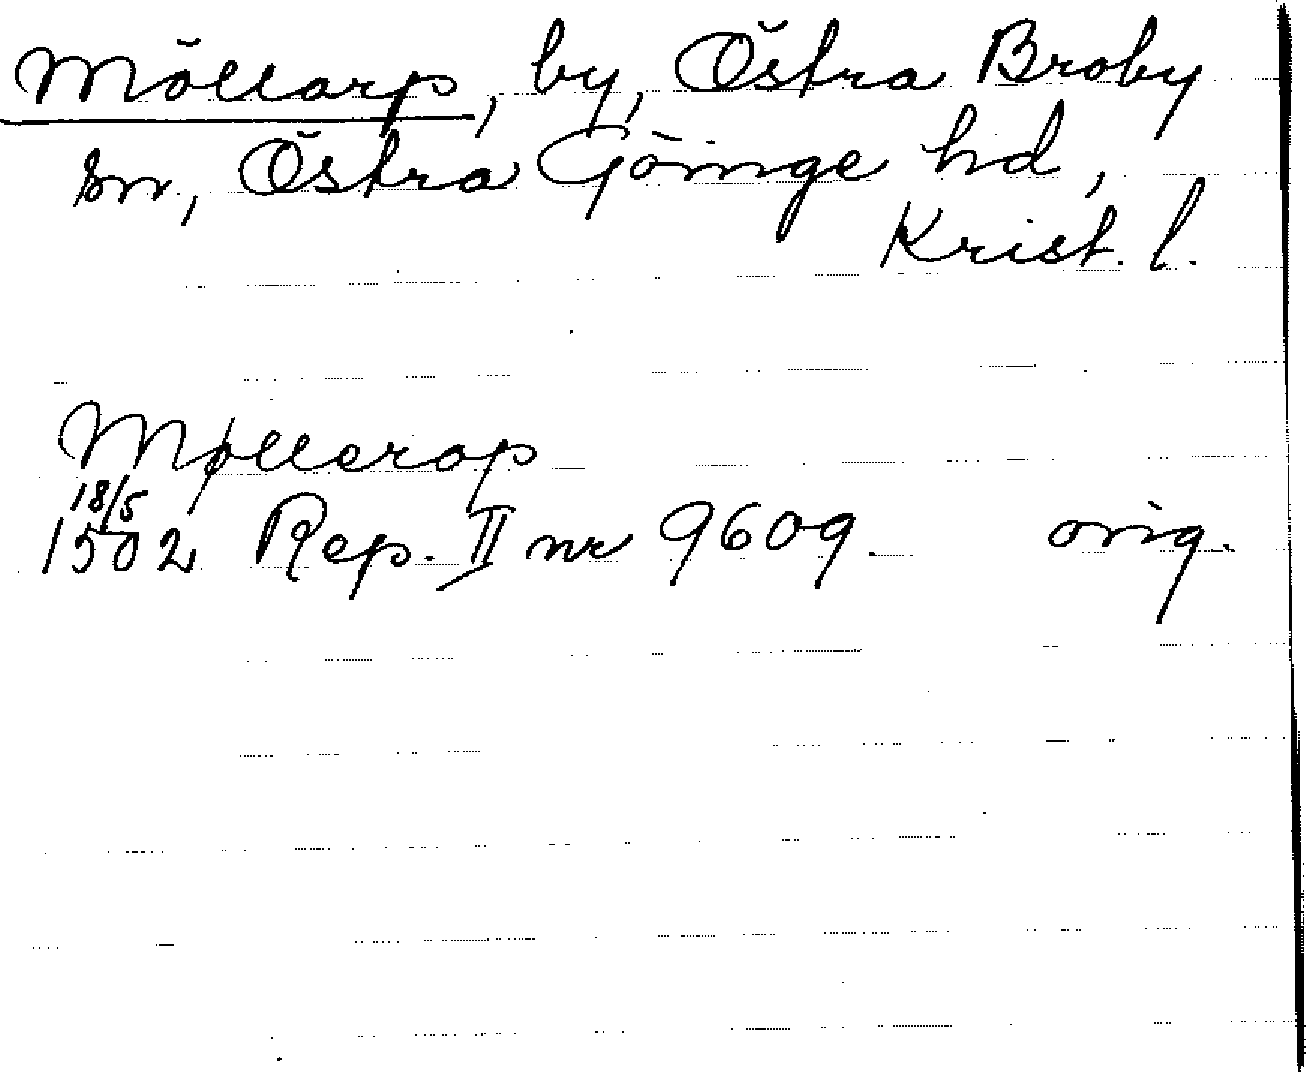 Möllarp, by, Östra Broby
sn, Östra Göinge hd,
Krist. l.
Møllerop
18/5
1502 Rep. II nr 9609. orig.